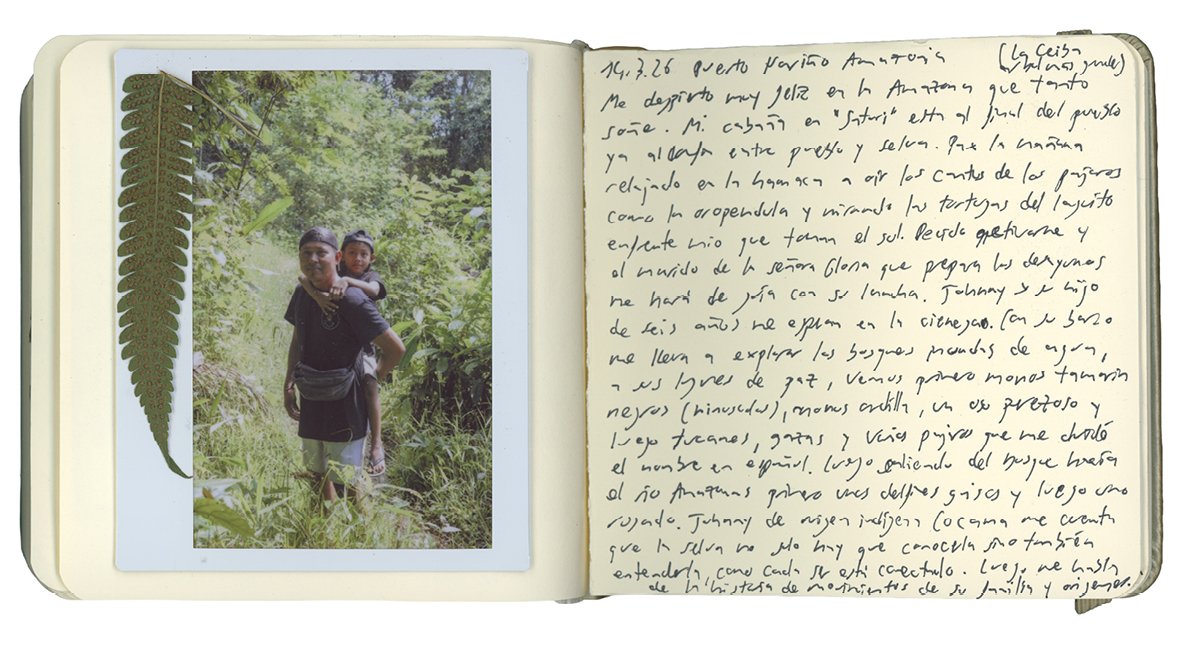 14.3.26 Puerto Nariño Amazonia (La Ceiba
árbol más grande)
Me despierto muy feliz en la Amazonia que tanto
soñe. Mi cabaña en "Saturi" esta al final del pueblo
ya al entre pueblo y selva. Pase la mañana
relajado en la hamaca a oir los cantos de los pajaros
como la oropendula y mirando las tortugas del laguito
enfrente mio que toman el sol. Decido y
el marido de la señora Gloria que prepara los desayunos
me hará de guía con su lancha. Johnny y su hijo
de seis años me esperan en la cienega. Con su barco
me lleva a explorar los bosques de agua,
a sus lugares de paz, vemos primero monos tamarin
negros (minusculos), monos ardilla, un oso prezoso y
luego tucanes, garzas y varios pajaros que me olvidé
el nombre en español. Luego saliendo del bosque hacia
el río Amazonas primero unos delfines grises y luego uno
rosado. Johnny de origen indígena Cocama me cuenta
que la selva no solo hay que conocerla sino también
entenderla, como cada ser está conectado. Luego me habla
de la historia de movimientos de su familia y origenes.